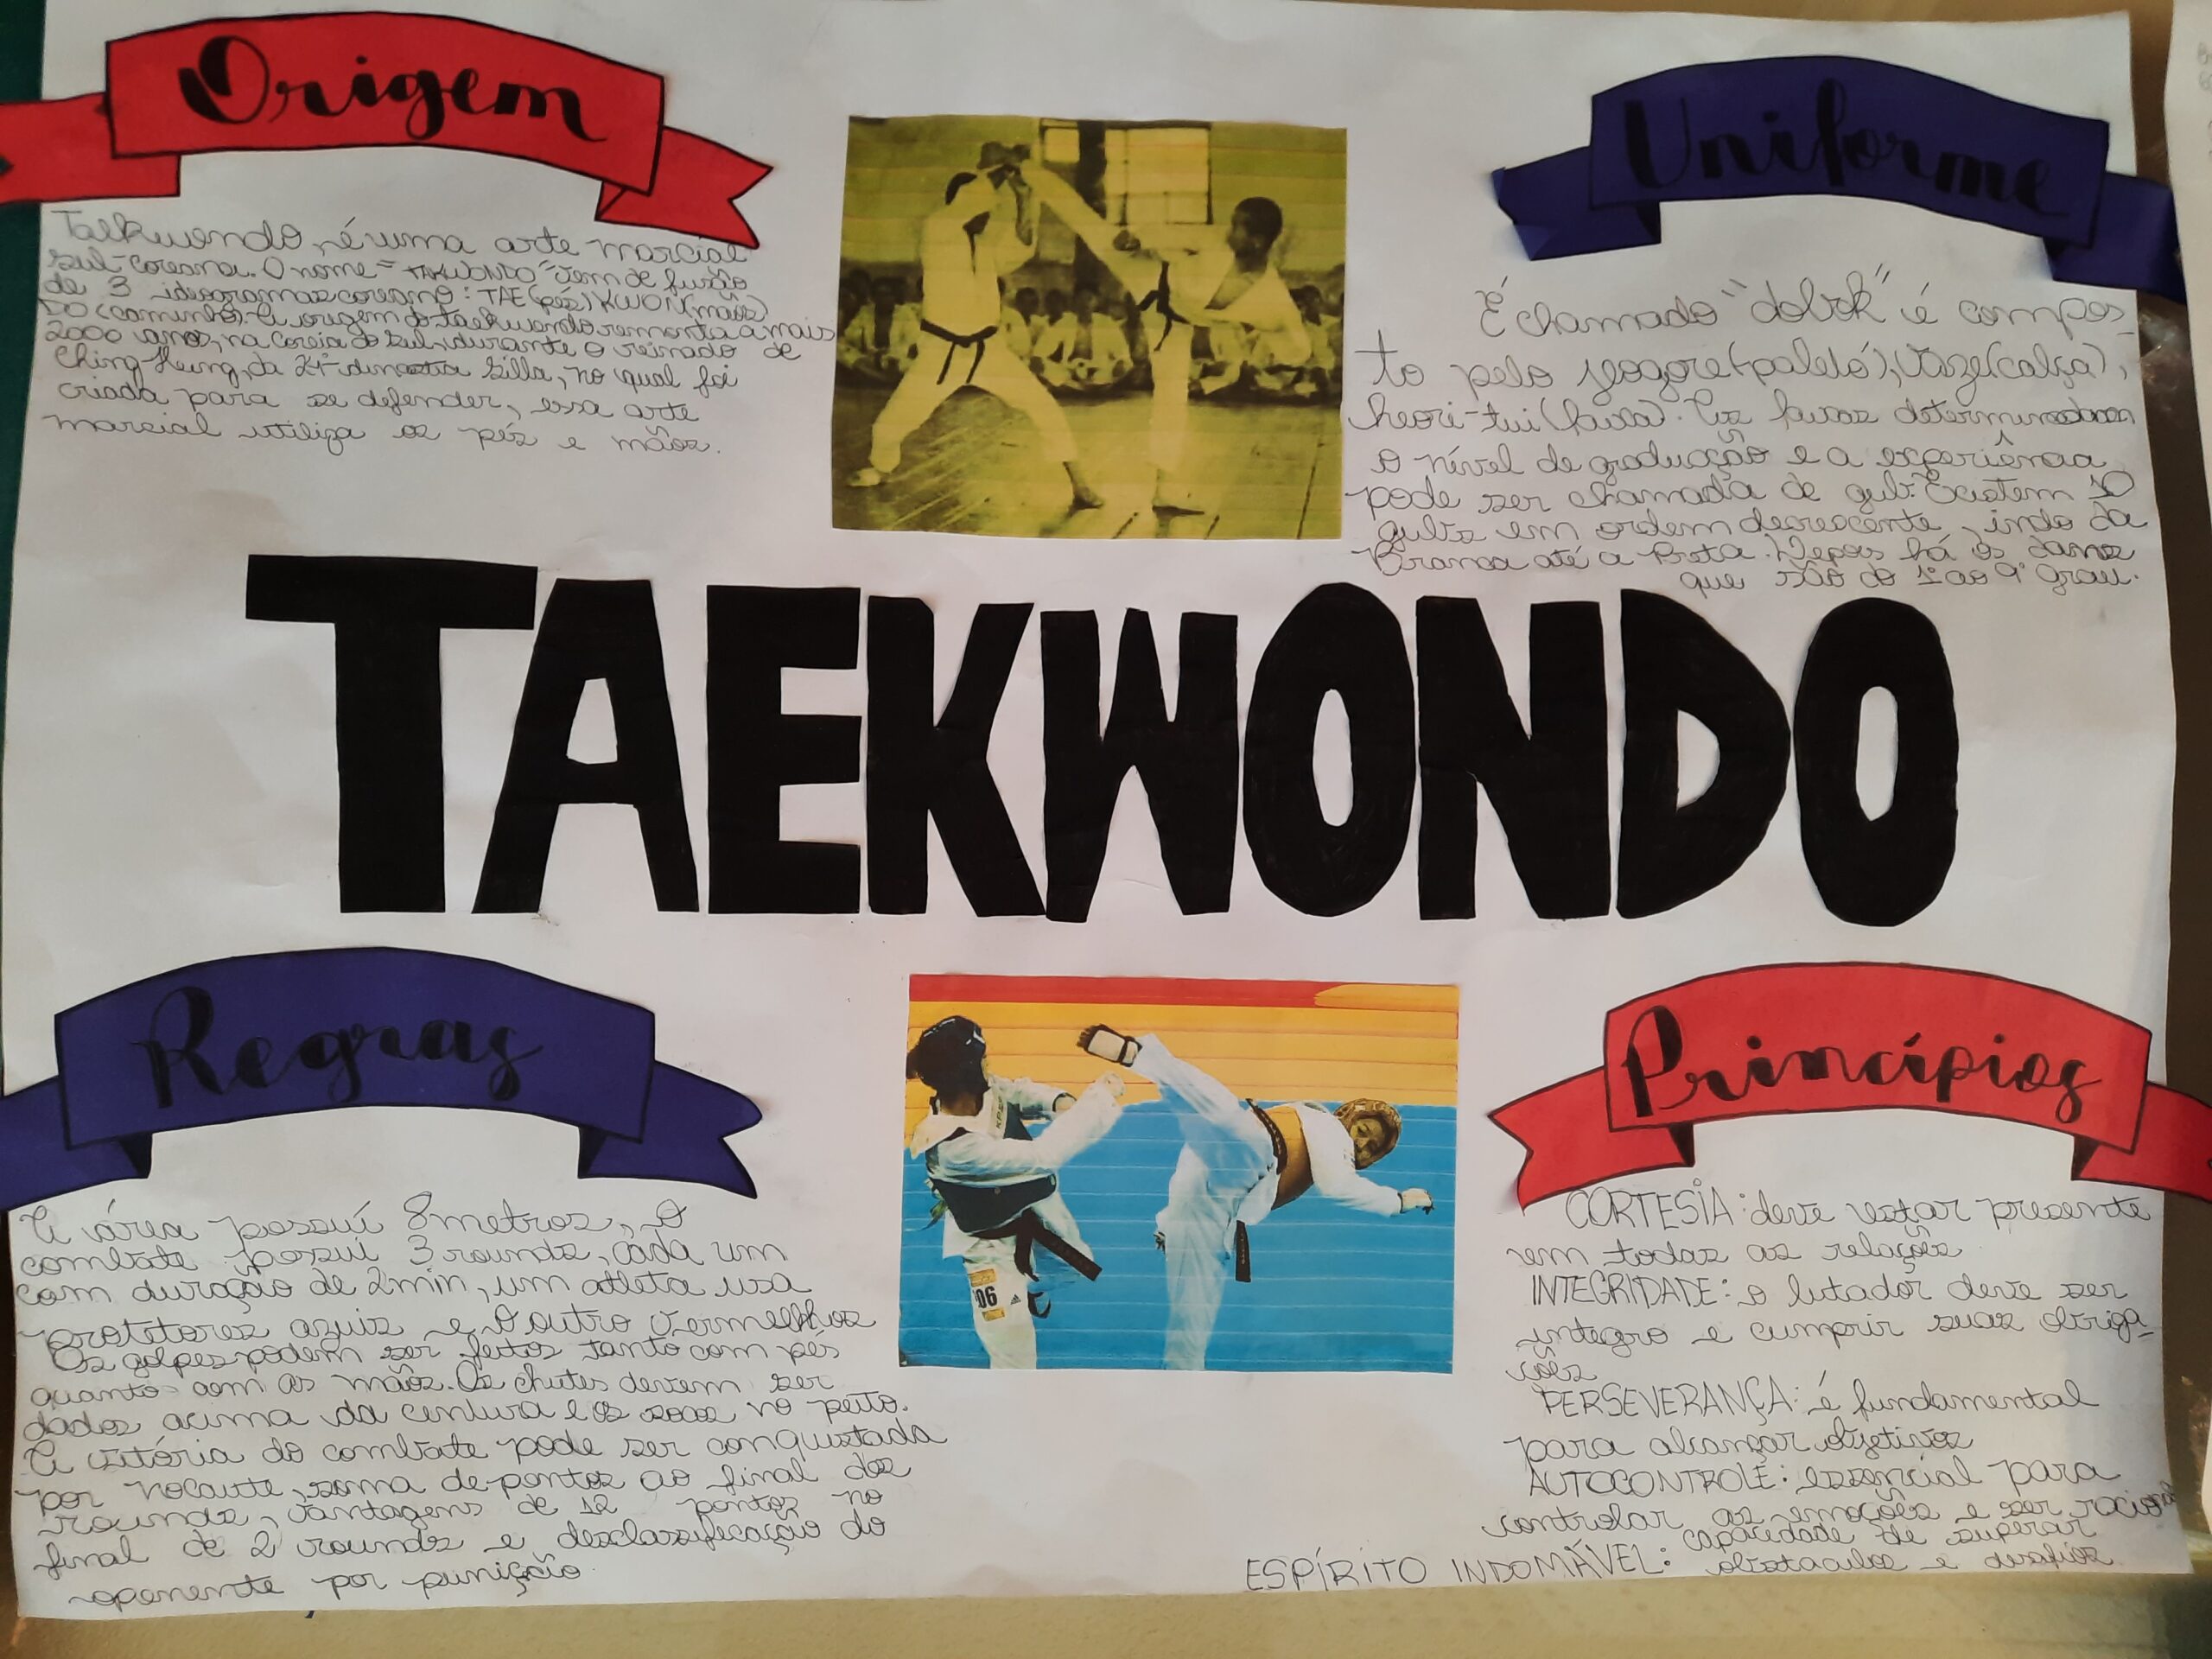 Origem
Taekwondo, é uma arte marcial
sul-coreana. O nome "TAKWONDO" vem de fusão
de 3 ideogramas coreano: TAE (pés) KWON (mãos)
DO (caminho). A origem do taekwondo remonta a mais
2000 anos, na coreia do Sul, durante o reinado de
Ching Heung, da 24ª dinastia Silla, no qual foi
criada para se defender, essa arte
marcial utiliza os pés e mãos.
Uniforme
É chamado "dobok" é compos-
to pelo jogore (paletó), (calça),
heori-tui (faixa). As faixas determinam
o nível de graduação e a experiência
pode ser chamada de gub. Existem 10
gubs em ordem decrescente, indo da
Branca até a Preta. Depois há os dans
que são do 1° ao 9° grau.
TAEKWONDO
Regras
A área possuí 8metros, O
combate possui 3 rounds, cada um
com duração de 2min, um atleta usa
protetores azuis e o outro vermelhos
Os golpes podem ser feitos tanto com pés
quanto com as mãos. Os chutes devem ser
dados acima da centura e os socos no peito.
A vitória do combate pode ser conquistada
por nocaute, soma de pontos ao final dos
rounds, vantagens de 12 pontos no
final de 2 rounds e desclassificação do
oponente por punição
06
Princípios
CORTESIA: deve estar presente
em todas as relações
INTEGRIDADE: o lutador deve ser
integro e cumprir suas obriga-
ções
PERSEVERANÇA: é fundamental
para alcançar objetivos
AUTOCONTROLE: essencial para
controlar as emoções e ser racional
ESPÍRITO INDOMÁVEL: capacidade de superar
obstaculos e desafios